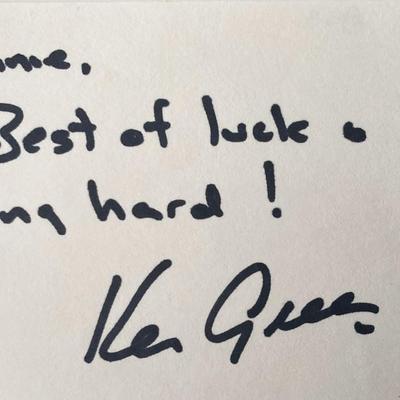 me.
Best of luck
ng hard!
Ken Green